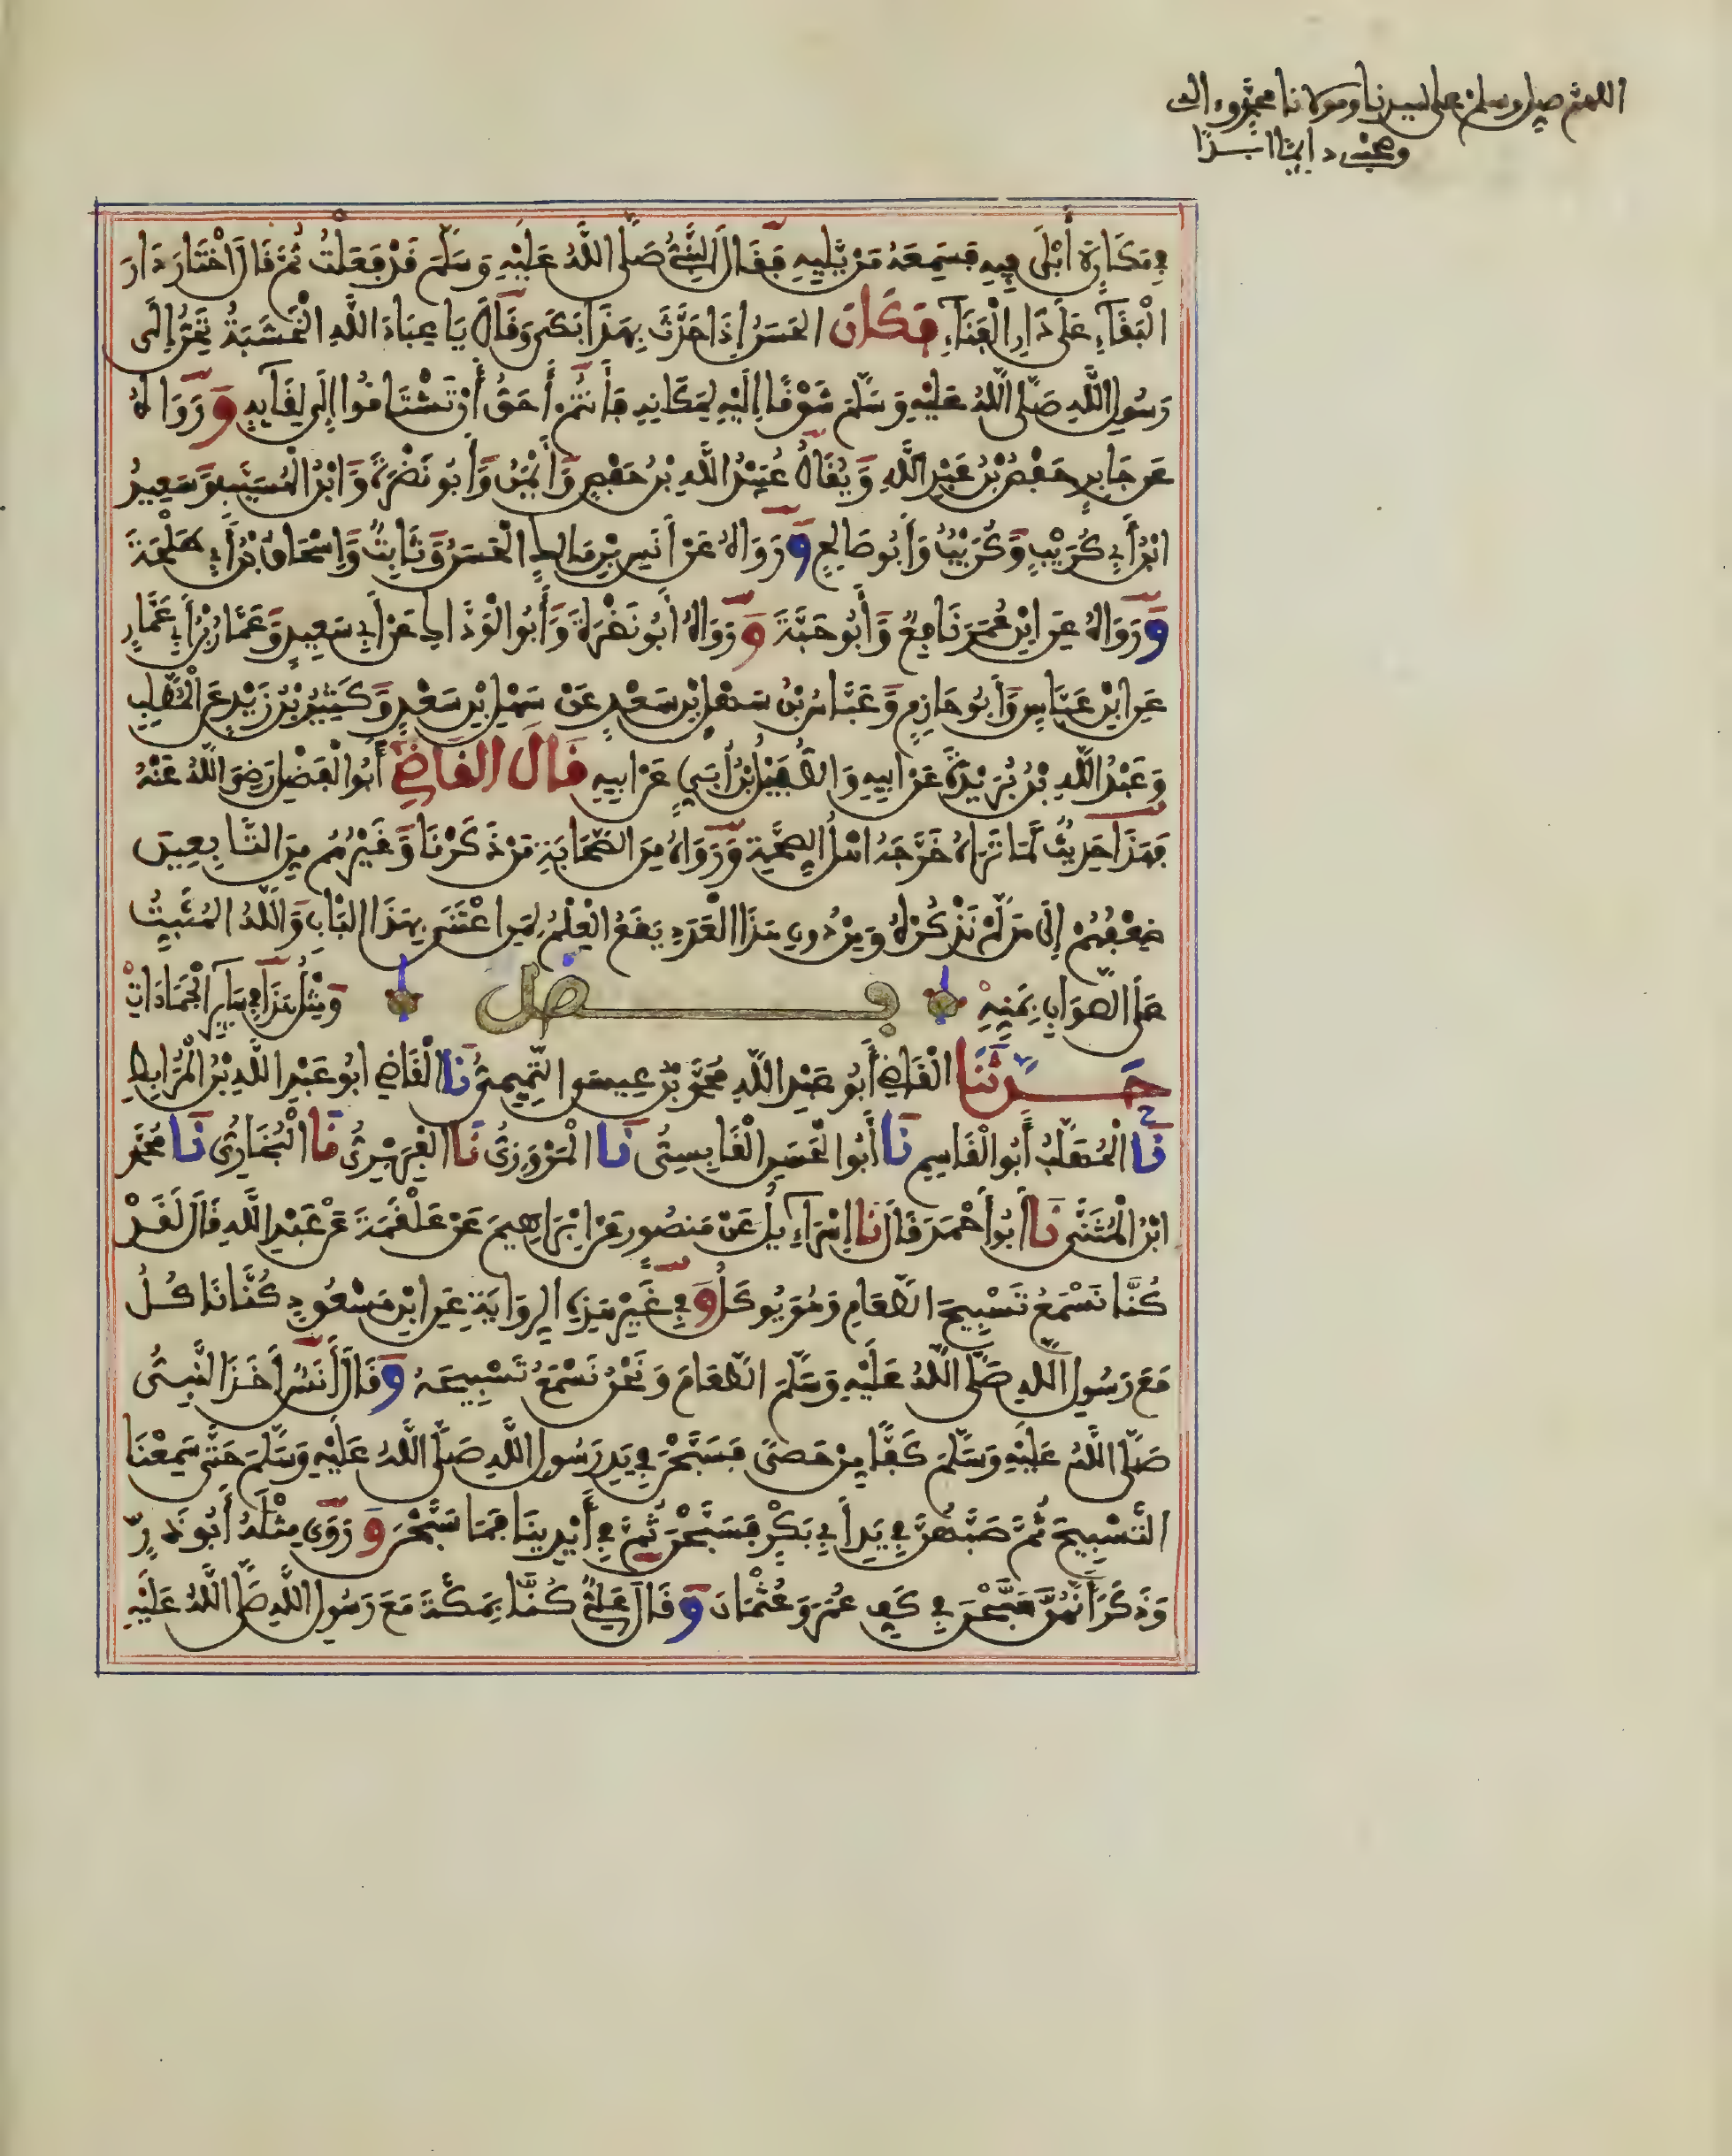 اللهم صل وسلم على سيدنا ومولانا محمد وءاله
وصحبه دائما ابدا
فِي مَكَانٍ لَا أَبْلَى فِيهِ فَسَمِعَهُ مَنْ يَلِيهِ فَقَالَ النَّبِيُّ صَلَّى اللَّهُ عَلَيْهِ وَسَلَّمَ قَدْ فَعَلْتُ ثُمَّ قَالَ اخْتَارَ دَارَ
الْبَقَاءِ عَلَى دَارِ الْفَنَاءِ فَكَانَ الْحَسَنُ إِذَا حَدَّثَ بِهَذَا بَكَى وَقَالَ يَا عِبَادَ اللَّهِ الْخَشَبَةُ تَحِنُّ إِلَى
رَسُولِ اللَّهِ صَلَّى اللَّهُ عَلَيْهِ وَسَلَّمَ شَوْقًا إِلَيْهِ لِمَكَانِهِ فَأَنْتُمْ أَحَقُّ أَنْ تَشْتَاقُوا إِلَى لِقَائِهِ وَرَوَاهُ
عَنْ جَابِرٍ حَفْصُ بْنُ عُبَيْدِ اللَّهِ وَيُقَالُ عُبَيْدُ اللَّهِ بْنُ حَفْصٍ وَأَيْمَنُ وَأَبُو نَضْرَةَ وَابْنُ الْمُسَيَّبِ وَسَعِيدُ
ابْنُ أَبِي كُرَيْبٍ وَكُرَيْبٌ وَأَبُو صَالِحٍ وَرَوَاهُ عَنْ أَنَسِ بْنِ مَالِكٍ الْحَسَنُ وَثَابِتٌ وَإِسْحَاقُ بْنُ أَبِي طَلْحَةَ
وَرَوَاهُ عَنِ ابْنِ عُمَرَ نَافِعٌ وَأَبُو حَيَّةَ وَرَوَاهُ أَبُو نَضْرَةَ وَأَبُو الْوَدَّاكِ عَنْ أَبِي سَعِيدٍ وَعَمَّارُ بْنُ أَبِي عَمَّارٍ
عَنِ ابْنِ عَبَّاسٍ وَأَبُو حَازِمٍ وَعَبَّاسُ بْنُ سَهْلِ بْنِ سَعْدٍ عَنْ سَهْلِ بْنِ سَعْدٍ وَكَثِيرُ بْنُ زَيْدٍ عَنِ الْمُطَّلِبِ
وَعَبْدُ اللَّهِ بْنُ بُرَيْدَةَ عَنْ أَبِيهِ وَالطُّفَيْلُ بْنُ أُبَيٍّ عَنْ أَبِيهِ قَالَ الْقَاضِي أَبُو الْفَضْلِ رَضِيَ اللَّهُ عَنْهُ
فَهَذَا حَدِيثٌ كَمَا تَرَاهُ خَرَّجَهُ أَهْلُ الصِّحَّةِ وَرَوَاهُ مِنَ الصَّحَابَةِ مَنْ ذَكَرْنَا وَغَيْرُهُمْ مِنَ التَّابِعِينَ
ضِعْفُهُمْ إِلَى مَنْ لَمْ نَذْكُرْهُ وَمِنْ دُونِ هَذَا الْعَدَدِ يَقَعُ الْعِلْمُ لِمَنِ اعْتَنَى بِهَذَا الْبَابِ وَاللَّهُ الْمُثَبِّتُ
عَلَى الصَّوَابِ بِمَنِّهِ فصل وَمِثْلُ هَذَا فِي سَائِرِ الْجَمَادَاتِ
حَدَّثَنَا الْقَاضِي أَبُو عَبْدِ اللَّهِ مُحَمَّدُ بْنُ عِيسَى التَّمِيمِيُّ نَا الْقَاضِي أَبُو عَبْدِ اللَّهِ بْنُ الْمُرَابِطِ
نَا الْمُهَلَّبُ أَبُو الْقَاسِمِ نَا أَبُو الْحَسَنِ الْقَابِسِيُّ نَا الْمَرْوَزِيُّ نَا الْفِرَبْرِيُّ نَا الْبُخَارِيُّ نَا مُحَمَّدُ
ابْنُ الْمُثَنَّى نَا أَبُو أَحْمَدَ قَالَ نَا إِسْرَاءِيلُ عَنْ مَنْصُورٍ عَنْ إِبْرَاهِيمَ عَنْ عَلْقَمَةَ عَنْ عَبْدِ اللَّهِ قَالَ لَقَدْ
كُنَّا نَسْمَعُ تَسْبِيحَ الطَّعَامِ وَهُوَ يُوكَلُ وَفِي غَيْرِ هَذِهِ الرِّوَايَةِ عَنِ ابْنِ مَسْعُودٍ كُنَّا نَاكُلُ
مَعَ رَسُولِ اللَّهِ صَلَّى اللَّهُ عَلَيْهِ وَسَلَّمَ الطَّعَامَ وَنَحْنُ نَسْمَعُ تَسْبِيحَهُ وَقَالَ أَنَسٌ أَخَذَ النَّبِيُّ
صَلَّى اللَّهُ عَلَيْهِ وَسَلَّمَ كَفًّا مِنْ حَصًى فَسَبَّحْنَ فِي يَدِ رَسُولِ اللَّهِ صَلَّى اللَّهُ عَلَيْهِ وَسَلَّمَ حَتَّى سَمِعْنَا
التَّسْبِيحَ ثُمَّ صَبَّهُنَّ فِي يَدِ أَبِي بَكْرٍ فَسَبَّحْنَ ثُمَّ فِي أَيْدِينَا فَمَا سَبَّحْنَ وَرَوَى مِثْلَهُ أَبُو ذَرٍّ
وَذَكَرَ أَنَّهُنَّ سَبَّحْنَ فِي كَفِّ عُمَرَ وَعُثْمَانَ وَقَالَ عَلِيٌّ كُنَّا بِمَكَّةَ مَعَ رَسُولِ اللَّهِ صَلَّى اللَّهُ عَلَيْهِ